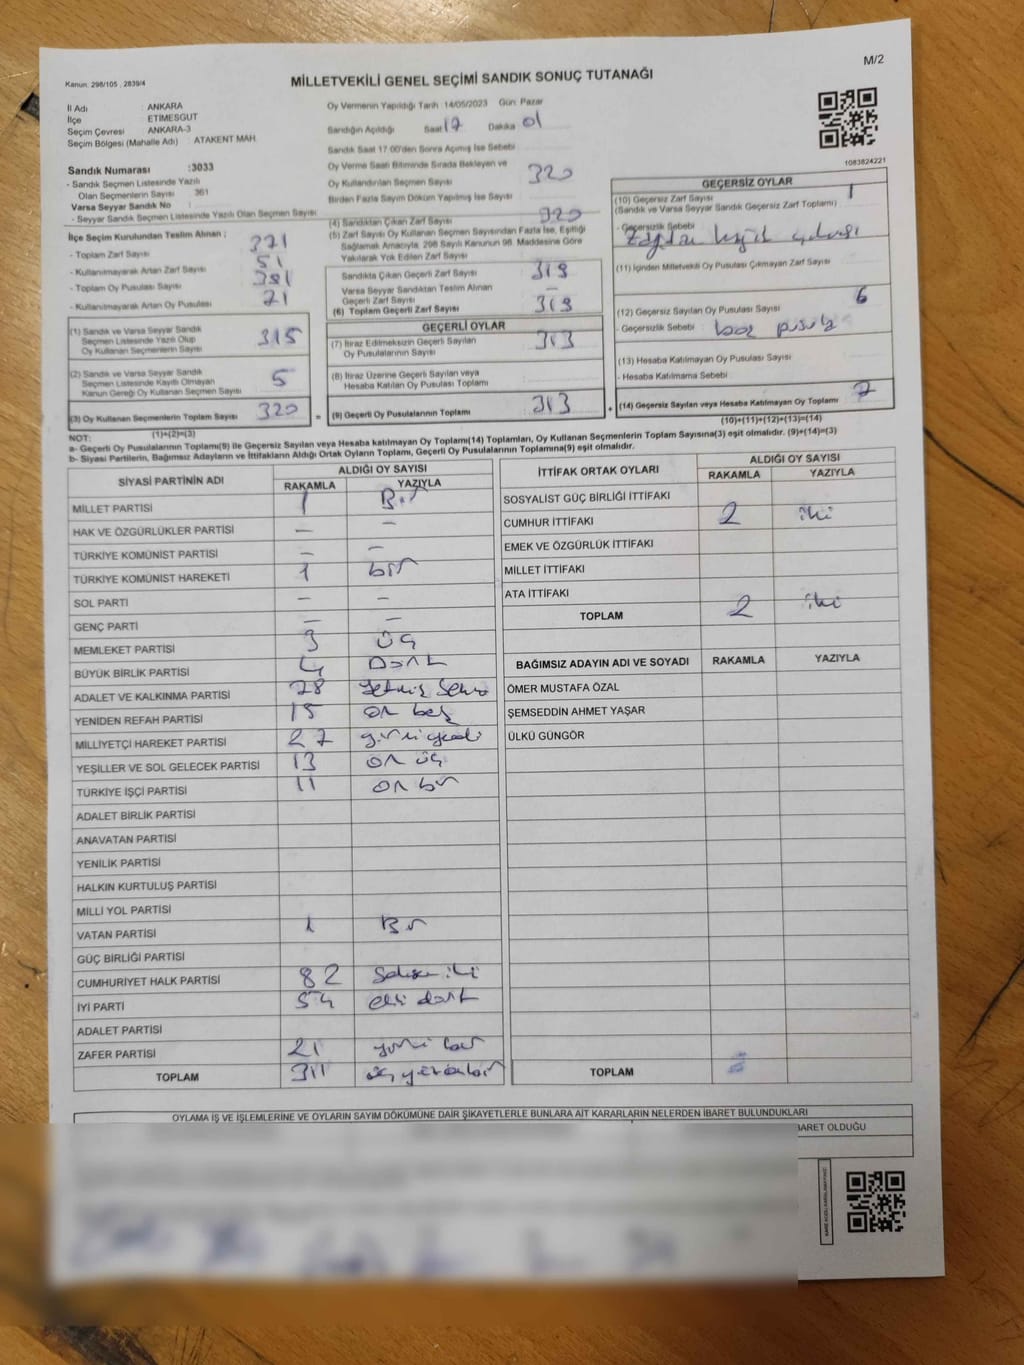 M/2
MİLLETVEKİLİ GENEL SEÇİMİ SANDIK SONUÇ TUTANAĞI
Kanun: 298/105 , 2839/4
İl Adı : ANKARA
İlçe : ETİMESGUT
Seçim Çevresi : ANKARA-3
Seçim Bölgesi (Mahalle Adı) : ATAKENT MAH
Sandık Numarası :3033
- Sandık Seçmen Listesinde Yazılı
Olan Seçmenlerin Sayısı : 361
Varsa Seyyar Sandık No :
- Seyyar Sandık Seçmen Listesinde Yazılı Olan Seçmen Sayısı :
İlçe Seçim Kurulundan Teslim Alınan ;
- Toplam Zarf Sayısı : 371
- Kullanılmayarak Artan Zarf Sayısı : 51
- Toplam Oy Pusulası : 391
- Kullanılmayarak Artan Oy Pusulası : 71
(1) Sandık ve Varsa Seyyar Sandık
Seçmen Listesinde Yazılı Olup
Oy Kullanan Seçmenlerin Sayısı 315
(2) Sandık ve Varsa Seyyar Sandık
Seçmen Listesinde Kayıtlı Olmayan
Kanun Gereği Oy Kullanan Seçmen Sayısı 5
(3) Oy Kullanan Seçmenlerin Toplam Sayısı 320
(1)+(2)=(3)
Oy Vermenin Yapıldığı Tarih :14/05/2023 Gün: Pazar
Sandığın Açıldığı Saat 17 Dakika 01
Sandık Saat 17.00'den Sonra Açımış İse Sebebi
Oy Verme Saati Bitiminde Sırada Bekleyen ve
Oy Kullandırılan Seçmen Sayısı 320
Birden Fazla Sayım Döküm Yapılmış İse Sayısı
(4) Sandıktan Çıkan Zarf Sayısı 320
(5) Zarf Sayısı Oy Kullanan Seçmen Sayısından Fazla İse, Eşitliği
Sağlamak Amacıyla, 298 Sayılı Kanunun 98. Maddesine Göre
Yakılarak Yok Edilen Zarf Sayısı
Sandıkta Çıkan Geçerli Zarf Sayısı 319
Varsa Seyyar Sandıktan Teslim Alınan
Geçerli Zarf Sayısı —
(6) Toplam Geçerli Zarf Sayısı 319
GEÇERLİ OYLAR
(7) İtiraz Edilmeksizin Geçerli Sayılan
Oy Pusulalarının Sayısı 313
(8) İtiraz Üzerine Geçerli Sayılan veya
Hesaba Katılan Oy Pusulası Toplamı
= (9) Geçerli Oy Pusulalarının Toplamı 313 +
1083824221
GEÇERSİZ OYLAR
(10) Geçersiz Zarf Sayısı 1
(Sandık ve Varsa Seyyar Sandık Geçersiz Zarf Toplamı)
- Geçersizlik Sebebi
(11) İçinden Milletvekili Oy Pusulası Çıkmayan Zarf Sayısı
(12) Geçersiz Sayılan Oy Pusulası Sayısı 6
- Geçersizlik Sebebi boş pusula
(13) Hesaba Katılmayan Oy Pusulası Sayısı
- Hesaba Katılmama Sebebi
(14) Geçersiz Sayılan veya Hesaba Katılmayan Oy Toplamı 7
(10)+(11)+(12)+(13)=(14)
NOT:
a- Geçerli Oy Pusulalarının Toplamı(9) ile Geçersiz Sayılan veya Hesaba katılmayan Oy Toplamı(14) Toplamları, Oy Kullanan Seçmenlerin Toplam Sayısına(3) eşit olmalıdır. (9)+(14)=(3)
b- Siyasi Partilerin, Bağımsız Adayların ve İttifakların Aldığı Ortak Oyların Toplamı, Geçerli Oy Pusulalarının Toplamına(9) eşit olmalıdır.
SİYASİ PARTİNİN ADI ALDIĞI OY SAYISI
RAKAMLA YAZIYLA
MİLLET PARTİSİ 1 Bir
HAK VE ÖZGÜRLÜKLER PARTİSİ — —
TÜRKİYE KOMÜNİST PARTİSİ — —
TÜRKİYE KOMÜNİST HAREKETİ 1 bir
SOL PARTİ — —
GENÇ PARTİ — —
MEMLEKET PARTİSİ 3 üç
BÜYÜK BİRLİK PARTİSİ 4 Dört
ADALET VE KALKINMA PARTİSİ 78 Yetmiş Sekiz
YENİDEN REFAH PARTİSİ 15 on beş
MİLLİYETÇİ HAREKET PARTİSİ 27 yirmi yedi
YEŞİLLER VE SOL GELECEK PARTİSİ 13 on üç
TÜRKİYE İŞÇİ PARTİSİ 11 on bir
ADALET BİRLİK PARTİSİ
ANAVATAN PARTİSİ
YENİLİK PARTİSİ
HALKIN KURTULUŞ PARTİSİ
MİLLİ YOL PARTİSİ
VATAN PARTİSİ 1 Bir
GÜÇ BİRLİĞİ PARTİSİ
CUMHURİYET HALK PARTİSİ 82 Seksen iki
İYİ PARTİ 54 elli dört
ADALET PARTİSİ
ZAFER PARTİSİ 21 yirmi bir
TOPLAM 311 üç yüz on bir
İTTİFAK ORTAK OYLARI ALDIĞI OY SAYISI
RAKAMLA YAZIYLA
SOSYALİST GÜÇ BİRLİĞİ İTTİFAKI
CUMHUR İTTİFAKI 2 iki
EMEK VE ÖZGÜRLÜK İTTİFAKI
MİLLET İTTİFAKI
ATA İTTİFAKI
TOPLAM 2 iki
BAĞIMSIZ ADAYIN ADI VE SOYADI RAKAMLA YAZIYLA
ÖMER MUSTAFA ÖZAL
ŞEMSEDDİN AHMET YAŞAR
ÜLKÜ GÜNGÖR
TOPLAM
OYLAMA İŞ VE İŞLEMLERİNE VE OYLARIN SAYIM DÖKÜMÜNE DAİR ŞİKAYETLERLE BUNLARA AİT KARARLARIN NELERDEN İBARET BULUNDUKLARI
BARET OLDUĞU